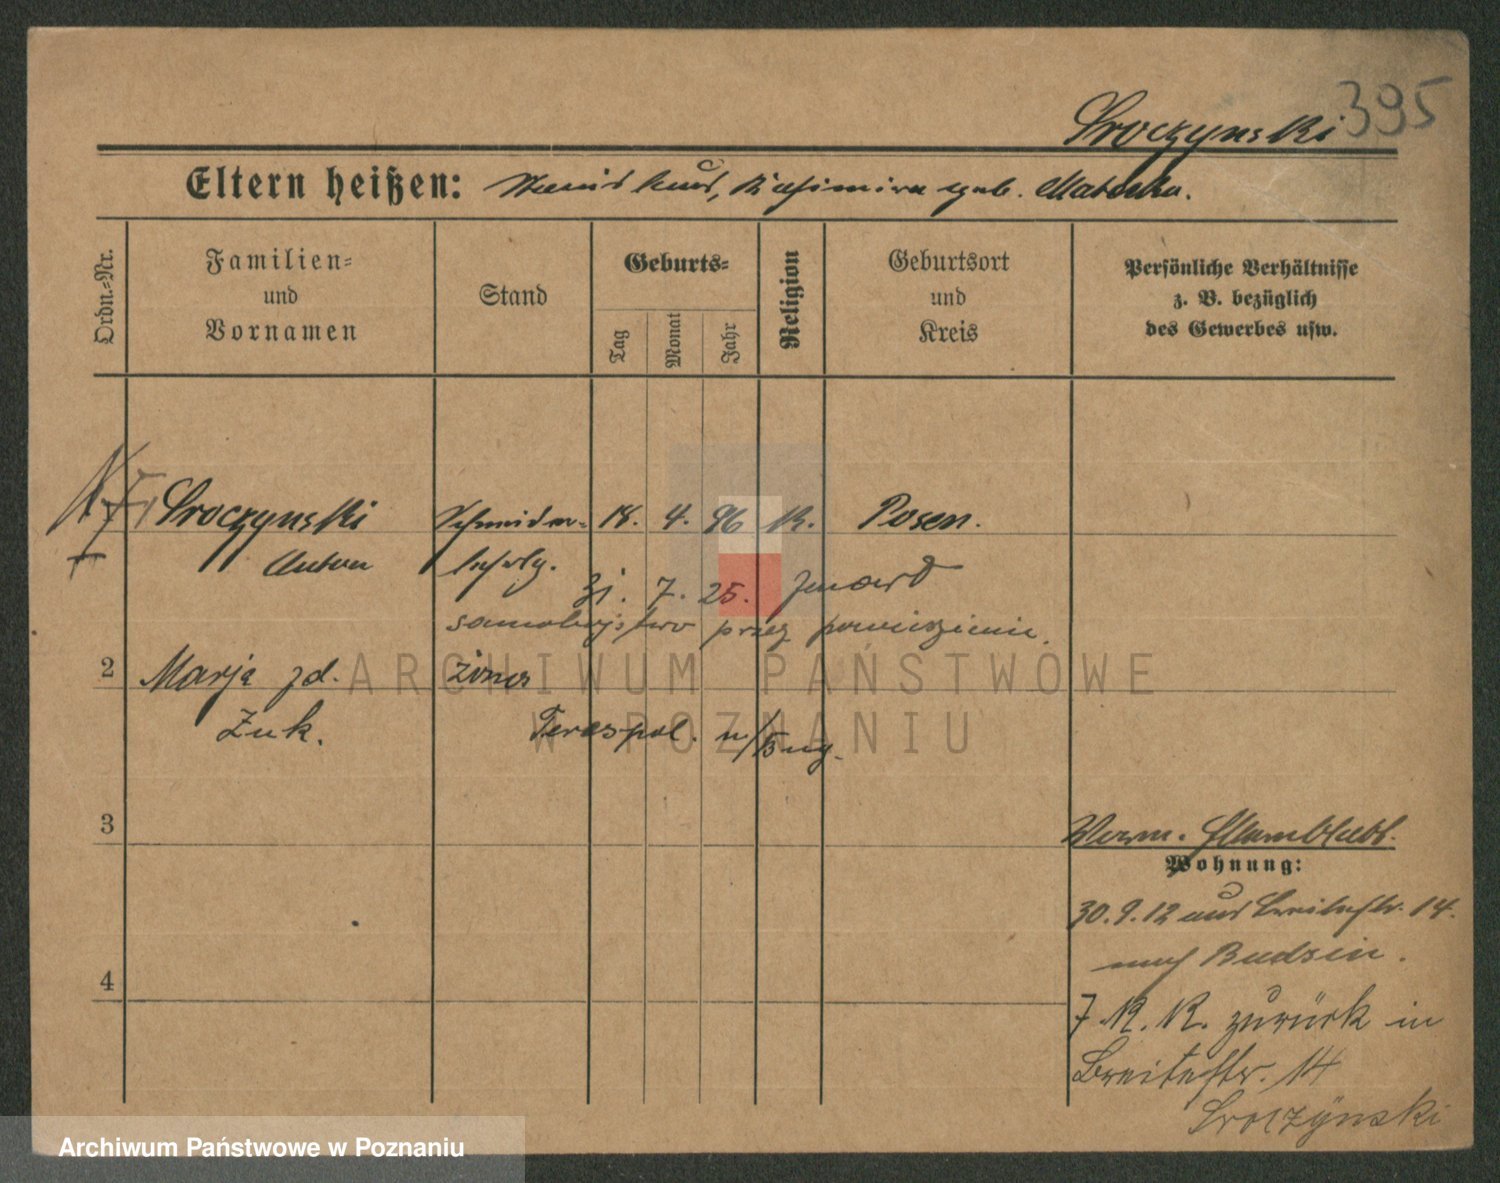 395
Sroczynski
Eltern heißen: Stanislaus, Kasimira geb. Matecka.
Ordn.-Nr.
Familien-
und
Vornamen
Stand
Geburts-
Tag
Monat
Jahr
Religion
Geburtsort
und
Kreis
Persönliche Verhältnisse
z. B. bezüglich
des Gewerbes usw.
Sroczynski
Anton
Schneider-
lehrlg.
18. 4. 96 K. Posen.
31. 7. 25. zmarł
samobójstwo przez powieszenie.
2 Marja zd. żona
Żuk. Terespol. n/Bug.
3
Verm.
Wohnung:
30.9.12 aus Breitestr. 14.
nach Budsin.
7 K. K. zurück in
Breitestr. 14
Sroczÿnski
4
ARCHIWUM PAŃSTWOWE
W POZNANIU
Archiwum Państwowe w Poznaniu